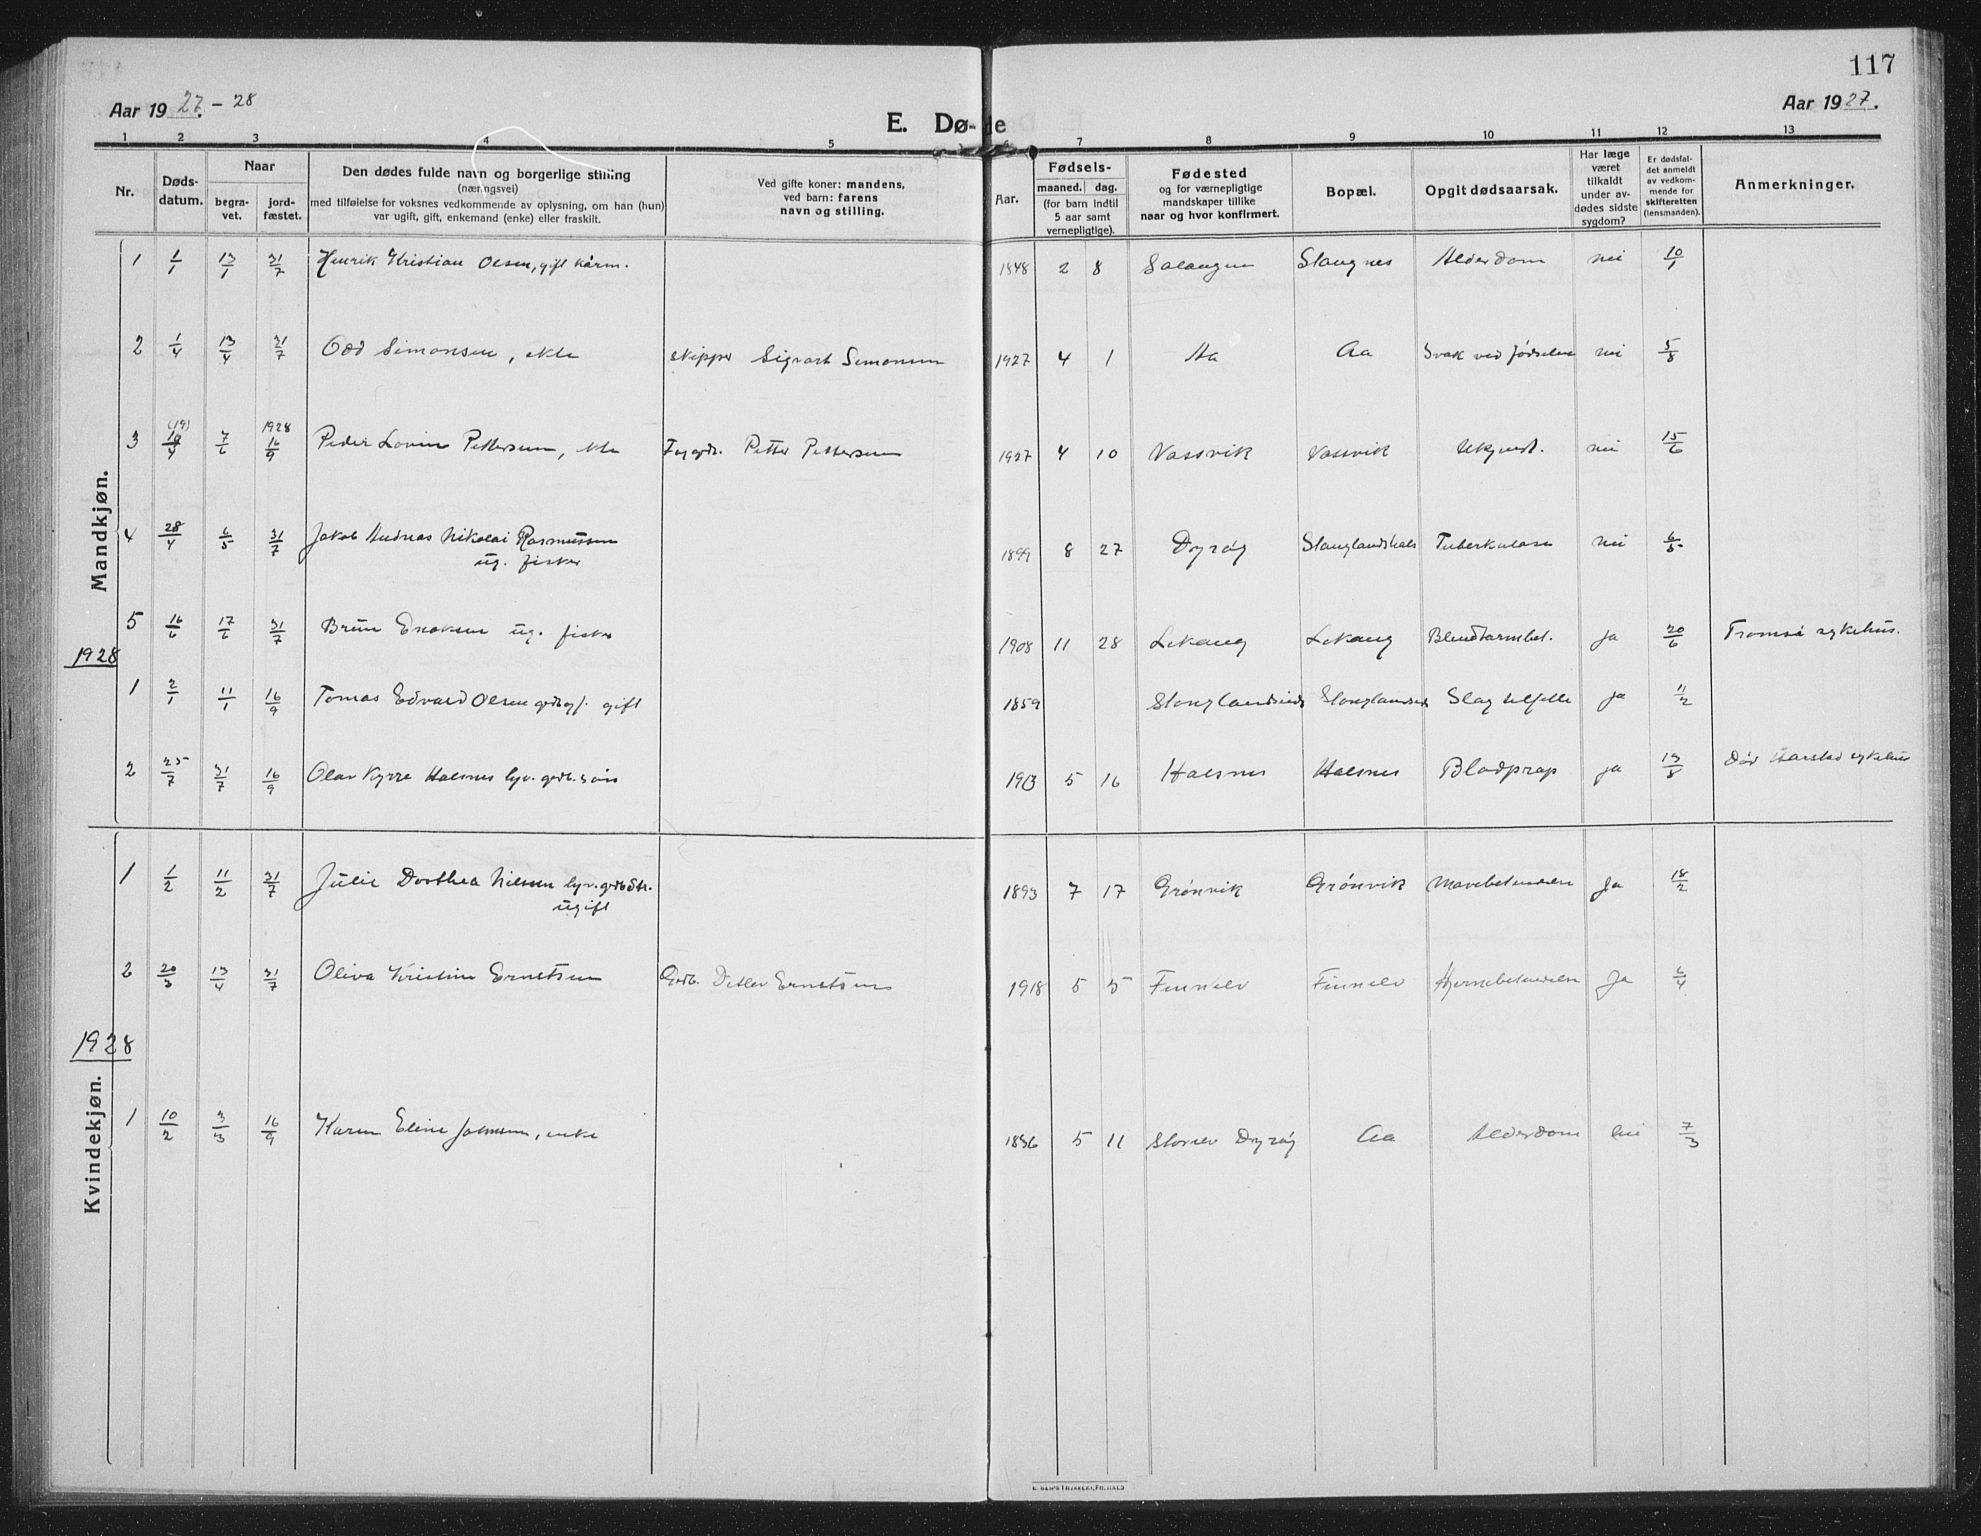 117
Aar 1927. - 28
E. Dø-de
Aar 1927.
1 2 3 4 5 7 8 9 10 11 12 13
Nr.
Døds-
datum.
Naar
begra-
vet.
jord-
fæstet.
Den dødes fulde navn og borgerlige stilling
(næringsvei)
med tilføielse for voksnes vedkommende av oplysning, om han (hun)
var ugift, gift, enkemand (enke) eller fraskilt.
Ved gifte koner: mandens,
ved barn: farens
navn og stilling.
Aar.
Fødsels-
maaned. dag.
(for barn indtil
5 aar samt
vernepligtige).
Fødested
og for værnepligtige
mandskaper tillike
naar og hvor konfirmert.
Bopæl.
Opgit dødsaarsak.
Har læge
været
tilkaldt
under av-
dødes sidste
sygdom?
Er dødsfal-
det anmeldt
av vedkom-
mende for
skifteretten
(lensmanden).
Anmerkninger.
Mandkjøn.
1 1/1 13/1 31/7 Henrik Kristian Olsen, gift kårm. 1848 2 8 Salangen Stangnes Alderdom nei 10/1
2 1/4 13/4 31/7 Odd Simonsen, ekte skipper Sigvart Simonsen 1927 4 1 Aa Aa Svak ved fødselen nei 5/8
(19) 1928
3 7/6 16/9 Peder Lovin Pettersen, ekte Petter Pettersen 1927 4 10 Vassvik Vassvik Ukjendt. nei 15/6
4 28/4 6/5 31/7 Jakob Andreas Nikolai Rasmussen 1899 8 27 Dyrøy Stanglandshals Tuberkulose nei 6/5
ug. fisker
5 16/6 17/6 31/7 Brun Enoksen ug. fisker 1908 11 28 Lekang Lekang Blendtarmbet. ja 20/6 Tromsø sykehus.
1928
1 2/1 11/1 16/9 Tomas Edvard Olsen gift 1859 Stonglandseid Stonglandseid Slagtilfelle ja 11/2
2 25/7 31/7 16/9 Olav Kyrre Halsnes lyv. grdb. søn 1913 5 16 Halsnes Halsnes Blodprop ja 13/8 Død Harstad sykehus
1 1/2 11/2 31/7 Julie Dorthea Nilsen lyv. grdb.dtr. 1893 7 17 Grønvik Grønvik Mavebetendelse Ja 18/2
ugift
2 20/3 13/4 31/7 Oliva Kristine Ernstsen Grdb. Detlev Ernstsen 1918 5 5 Finnelv Finnelv Hjernebetendelse Ja 6/4
1928
Kvindekjøn.
1 10/2 3/3 16/9 Karen Eline Johnsen, enke 1836 5 11 Storelv Dyrøy Aa Alderdom nei 7/3